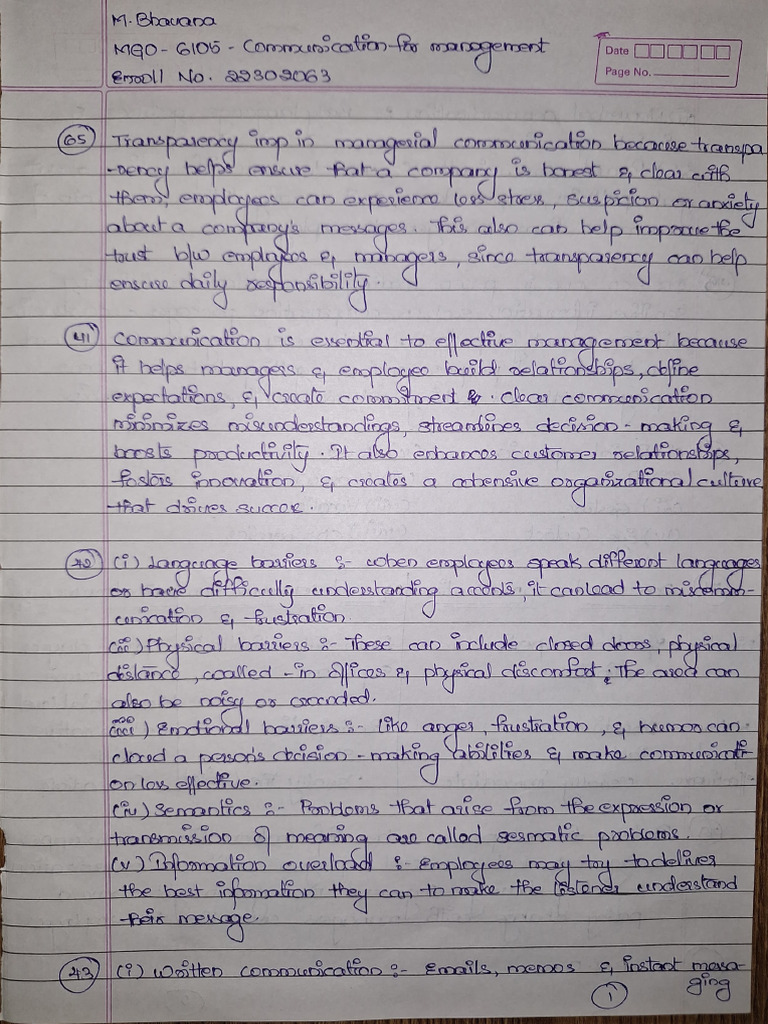 M. Bhavana
MGO - 6105 - Communication for management
Enroll No. 22302063
Date
Page No.
65 Transparency imp in managerial communication because transpa
-rency helps ensure that a company is honest & clear with
them, employees can experience less stress, suspicion or anxiety
about a company's messages. This also can help improve the
trust b/w employees & managers, since transparency can help
ensure daily responsibility.
41 Communication is essential to effective management because
it helps managers & employee build relationships, define
expectations, & create commitment &. clear communication
minimizes misunderstandings, streamlines decision - making &
boosts productivity. It also enhances customer relationships,
fosters innovation, & creates a cohensive organizational culture
that drives succes.
42 (i) Language barriers :- when employees speak different languages
or have difficully understanding accents, it can lead to miscomm-
unication & frustration
(ii) Physical barriers :- These can include closed doors, physical
distance, walled - in offices & physical discomfort; The area can
also be noisy or crowded.
(iii) Emotional barriers :- like anger, frustration, & humor can
cloud a person's decision - making abilities & make communicati
on less effective.
(iv) Semantics :- Problems that arise from the expression or
transmission of meaning are called sesmatic problems.
(v) Information overload :- Employees may try to deliver
the best information they can to make the listener understand
their message.
43 (i) Written communication :- Emails, memos & instant messa-
ging
1